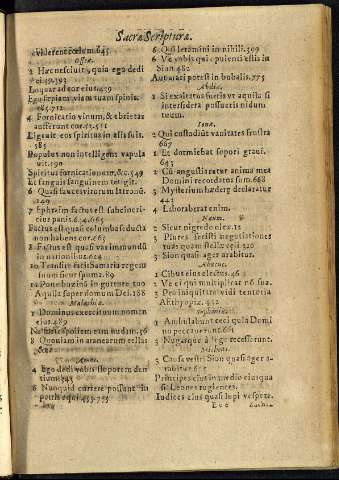 Sacræ Scripturæ.
eviderent cœlum. 645
Osea.
2 Hæc nesciuit, quia ego dedi
ei. 39. 393
Loquar ad cor eius. 439
Ego sæpiam viam tuam spinis.
4 Fornicatio vinum, & ebrietas
aufferunt cor. 43. 511
Ligauit eos spiritus in
585
Populus non intelligens vapula
uit. 190
Spiritus fornicationum, &c. 549
Et sanguis sanguinem tetigit.
6 Quasi fauces virorum latronũ.
149
7 Ephraim factus est subcineri-
cius panis.
Factus est quasi columba seducta
non habens cor. 463
8 Factus est quasi vas immundũ
in nationibus. 624
10 Transire fecit Samaria regem
suum sicut spumã. 89
14 Ponebuzinõ in gutture tuo
Aquila super domum Dei. 188
Malachiæ.
7 Dominus exercituum nomen
eius. 489
8 Quoniam in aranearum tellas
Amos.
4 Ego dedi vobis stuporem den-
tium. 343
6 Nunquid currere possunt in
petris equi. 433. 753
6 Qui letamini in nihili. 309
6 Ve vobis qui opulenti estis in
Sion 482
Aut arari potest in bubalis. 775
Abdiæ.
1 Si exaltatus fueris vt aquila si
inter sidera possueris nidum
tuum.
Ionæ.
2 Qui custodiũt vanitates frustra
667
1 Et dormiebat sopori graui.
643
2 Cũ angustiaretur anima mea
Domini recordatus sum. 668
3 Mysterium hædereg declaratur
443
4 Laboraberat enim.
Naum.
2 Sicut nigredo olæ. 15
3 Plures fecisti negotiationes
tuas quam stellæ cœli 320
3 Sion quasi ager arabitur.
Abacuc.
1 Cibus eius electus. 46
2 Ve ei qui multiplicat nõ sua.
3 Pro iniquitate vidi tentoria
Æthyopiæ. 452
Sophoniæ.
1 Ambulabunt ceci quia Domi
no peccauerunt. 661
3 Nugas que à lege recesserunt.
3 Causa vestri Sion quasi ager a-
rabitur.
Principes eius in medio eius qua
si Leones rugientes.
Iudices eius quasi lupi vespere.
E e e